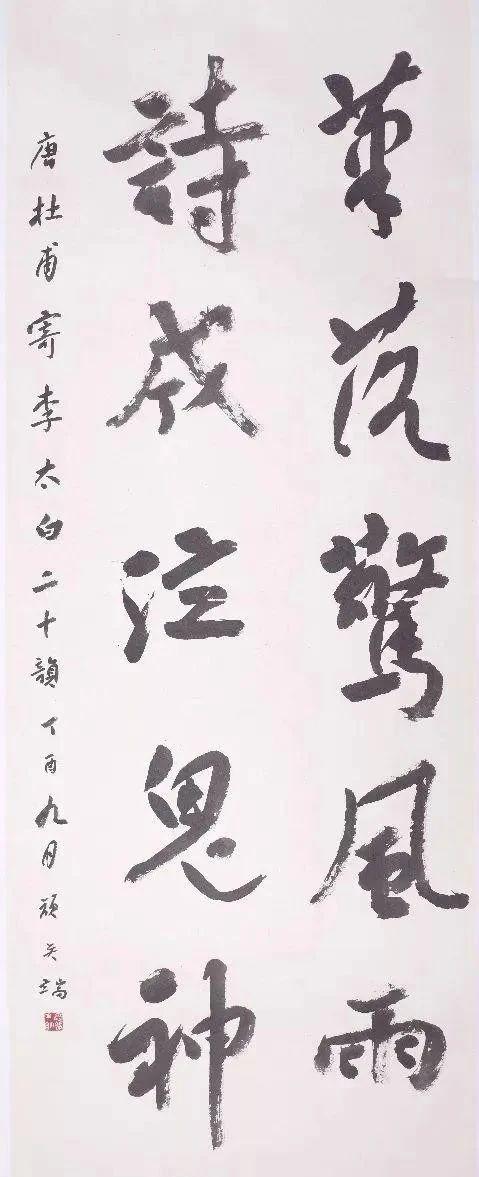 筆落驚風雨
詩成泣鬼神
唐杜甫寄李太白二十韻丁酉九月顧亞瑞